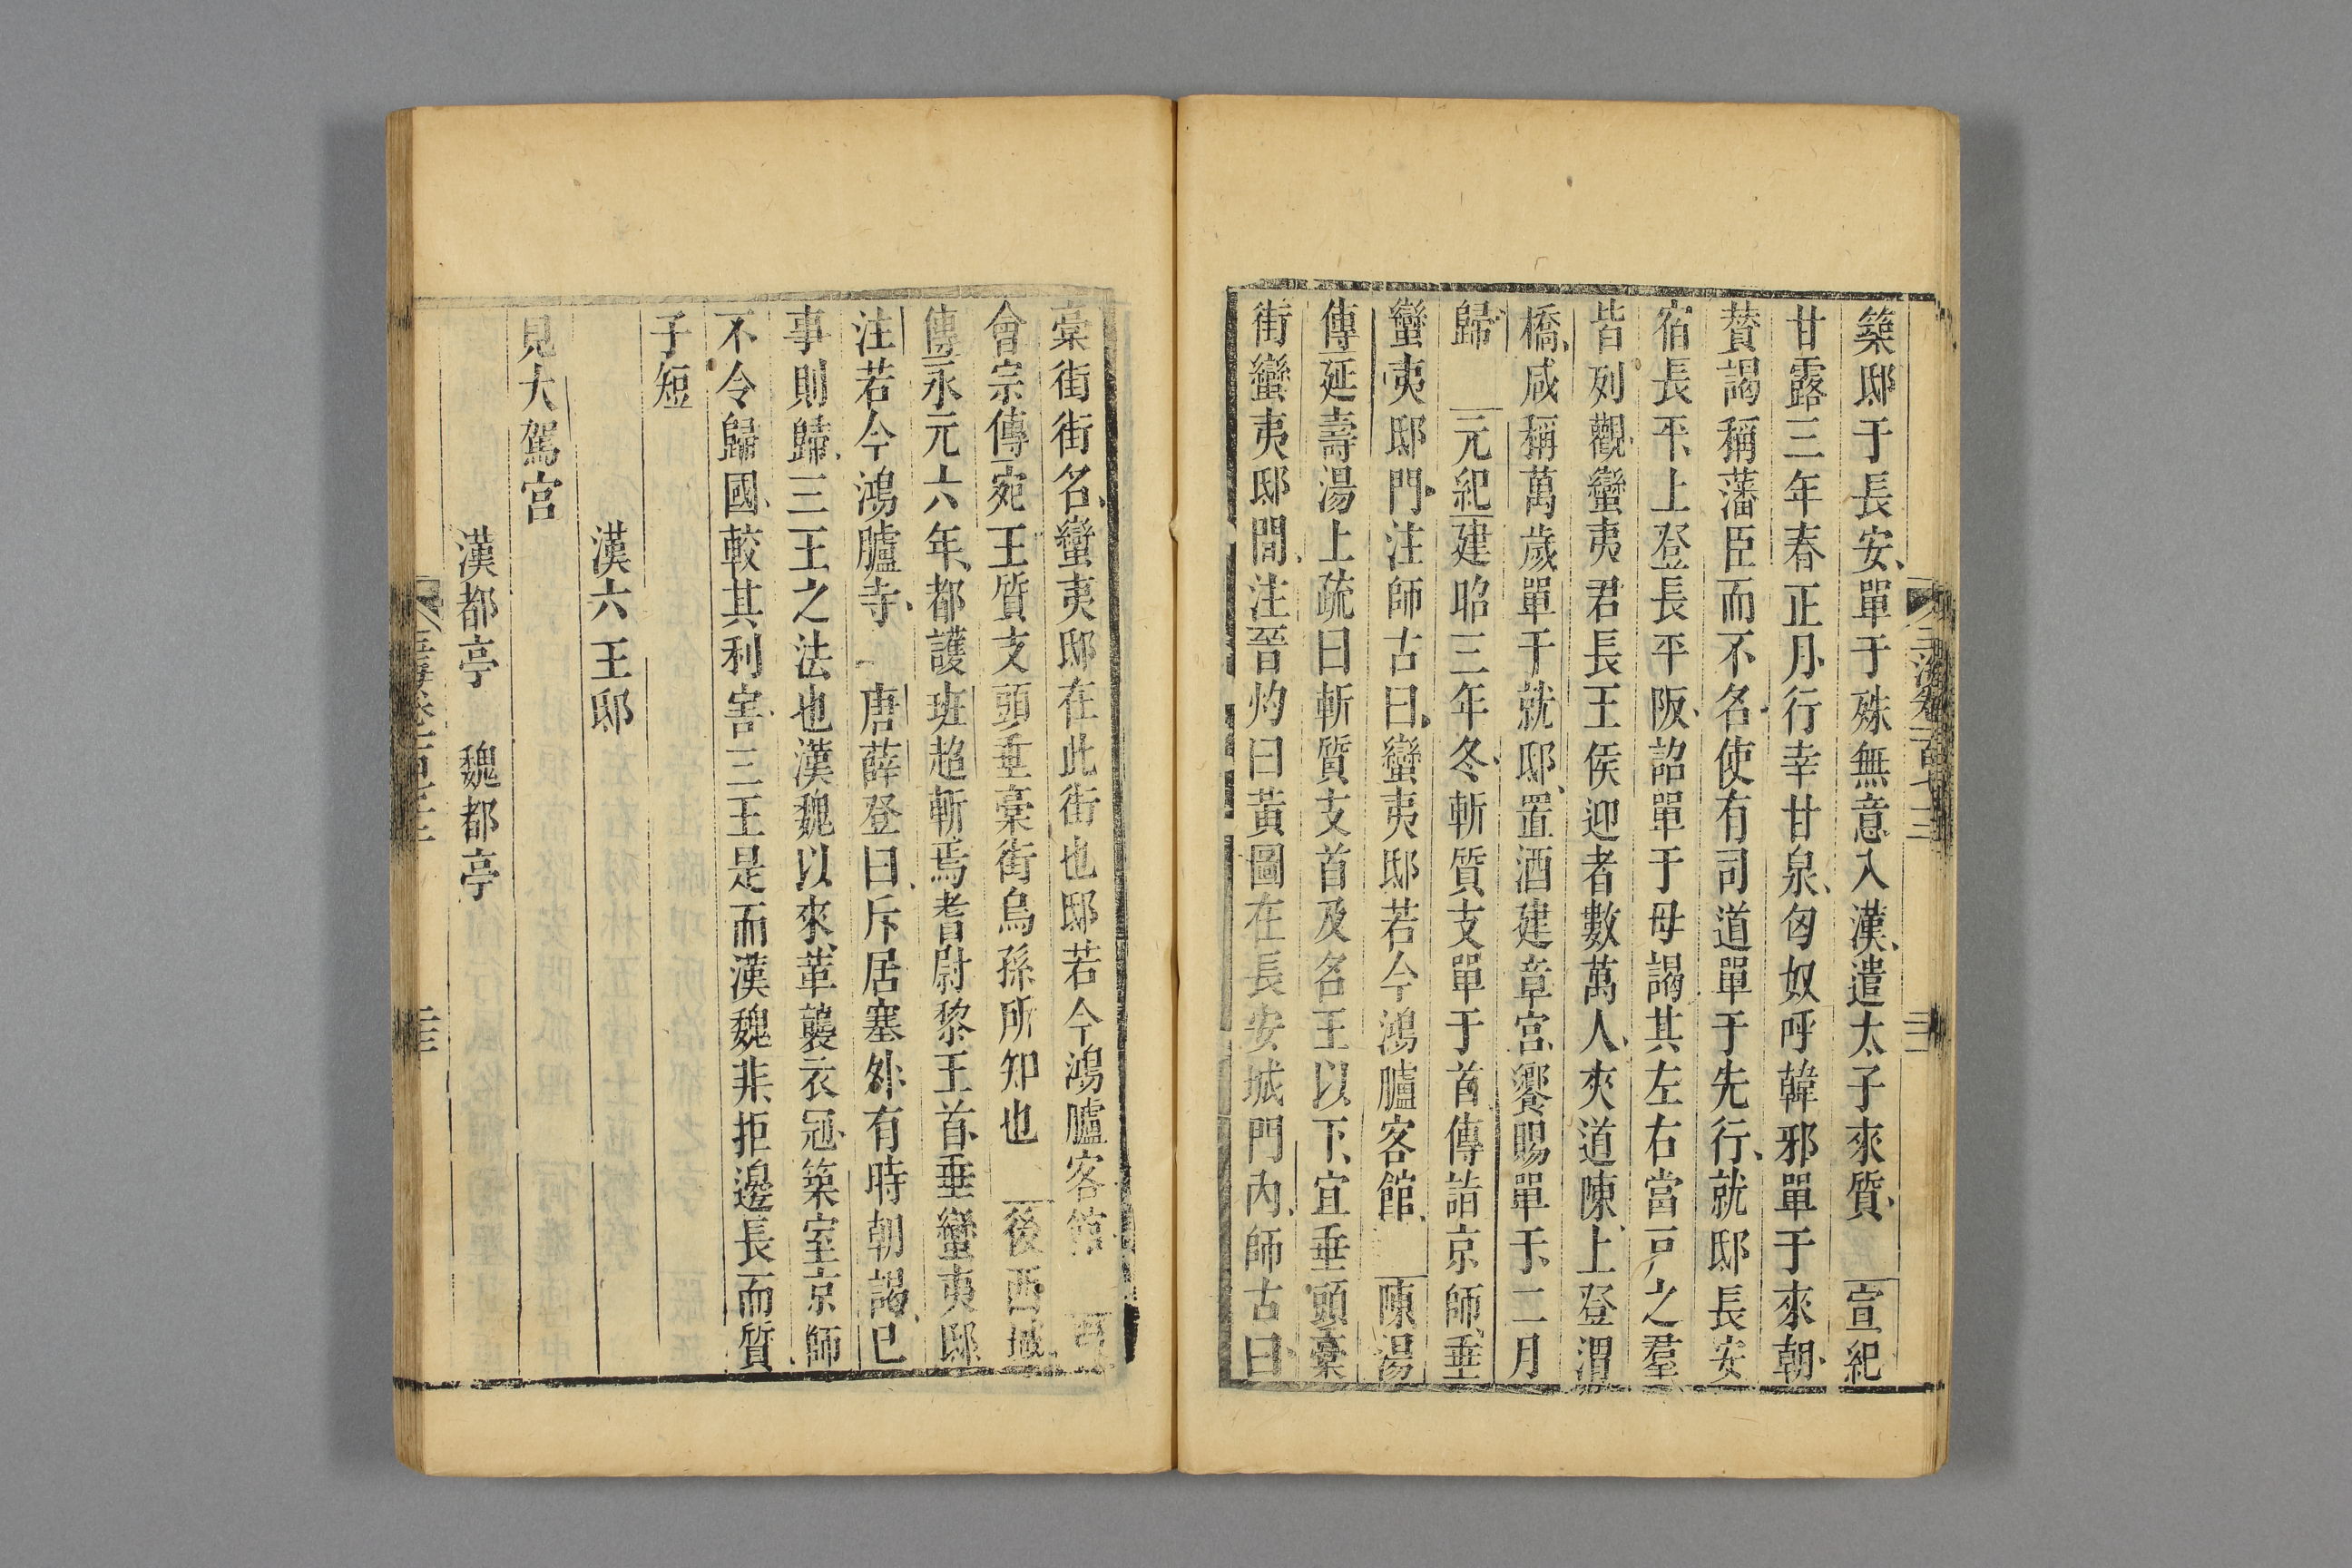 築邸于長安單于殊無意入漢遣太子來質 宣紀
甘露三年春正月行幸甘泉匈奴呼韓邪單于來朝
贊謁稱藩臣而不名使有司道單于先行就邸長安
宿長平上登長平阪詔單于毋謁其左右當戸之羣
皆列觀蠻夷君長王侯迎者數萬人夾道陳上登渭
橋咸稱萬歲單于就邸置酒建章宮饗賜單于二月
歸 元紀建昭三年冬斬質支單于首傳詣京師垂
蠻夷邸門注師古曰蠻夷邸若今鴻臚客館 陳湯
傳延壽湯上疏曰斬質支首及名王以下宜垂頭藁
街蠻夷邸間注晉灼曰黃圖在長安城門內師古曰
藁街街名蠻夷邸在此街也邸若今鴻臚客館
會宗傳宛王質支頭垂藁街烏孫所知也 後西域
傳永元六年都護班超斬焉耆尉黎王首垂蠻夷邸
注若今鴻臚寺 唐薛登曰斥居塞外有時朝謁已
事則歸三王之法也漢魏以來革襲衣冠築室京師
不令歸國較其利害三王是而漢魏非拒邊長而質
子短
漢六王邸
見大駕宮
漢都亭 魏都亭